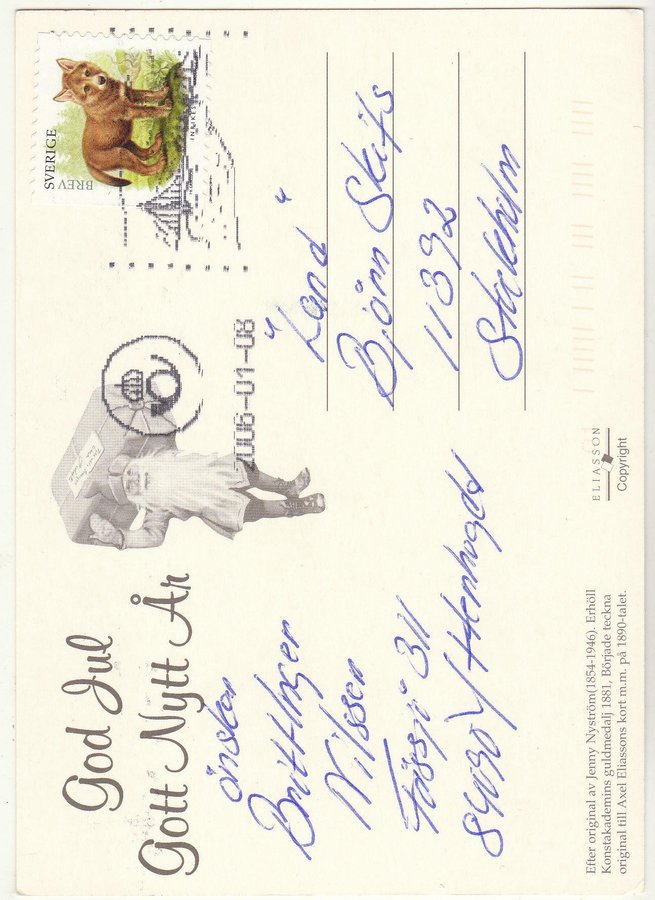 God Jul
Gott Nytt År
önskar
Britt-Inger
Nilsson
Fässjö 311
84090 Ytterhogdal
SVERIGE
BREV
INRIKES
2006-01-08
"Land"
Björn Skifs
11392
Stockholm
ELIASSON
Copyright
Efter original av Jenny Nyström(1854-1946). Erhöll
Konstakademins guldmedalj 1881, Började teckna
original till Axel Eliassons kort m.m. på 1890-talet.